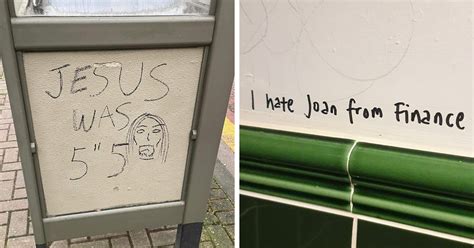 JESUS
WAS
5"5
I hate Joan from Finance